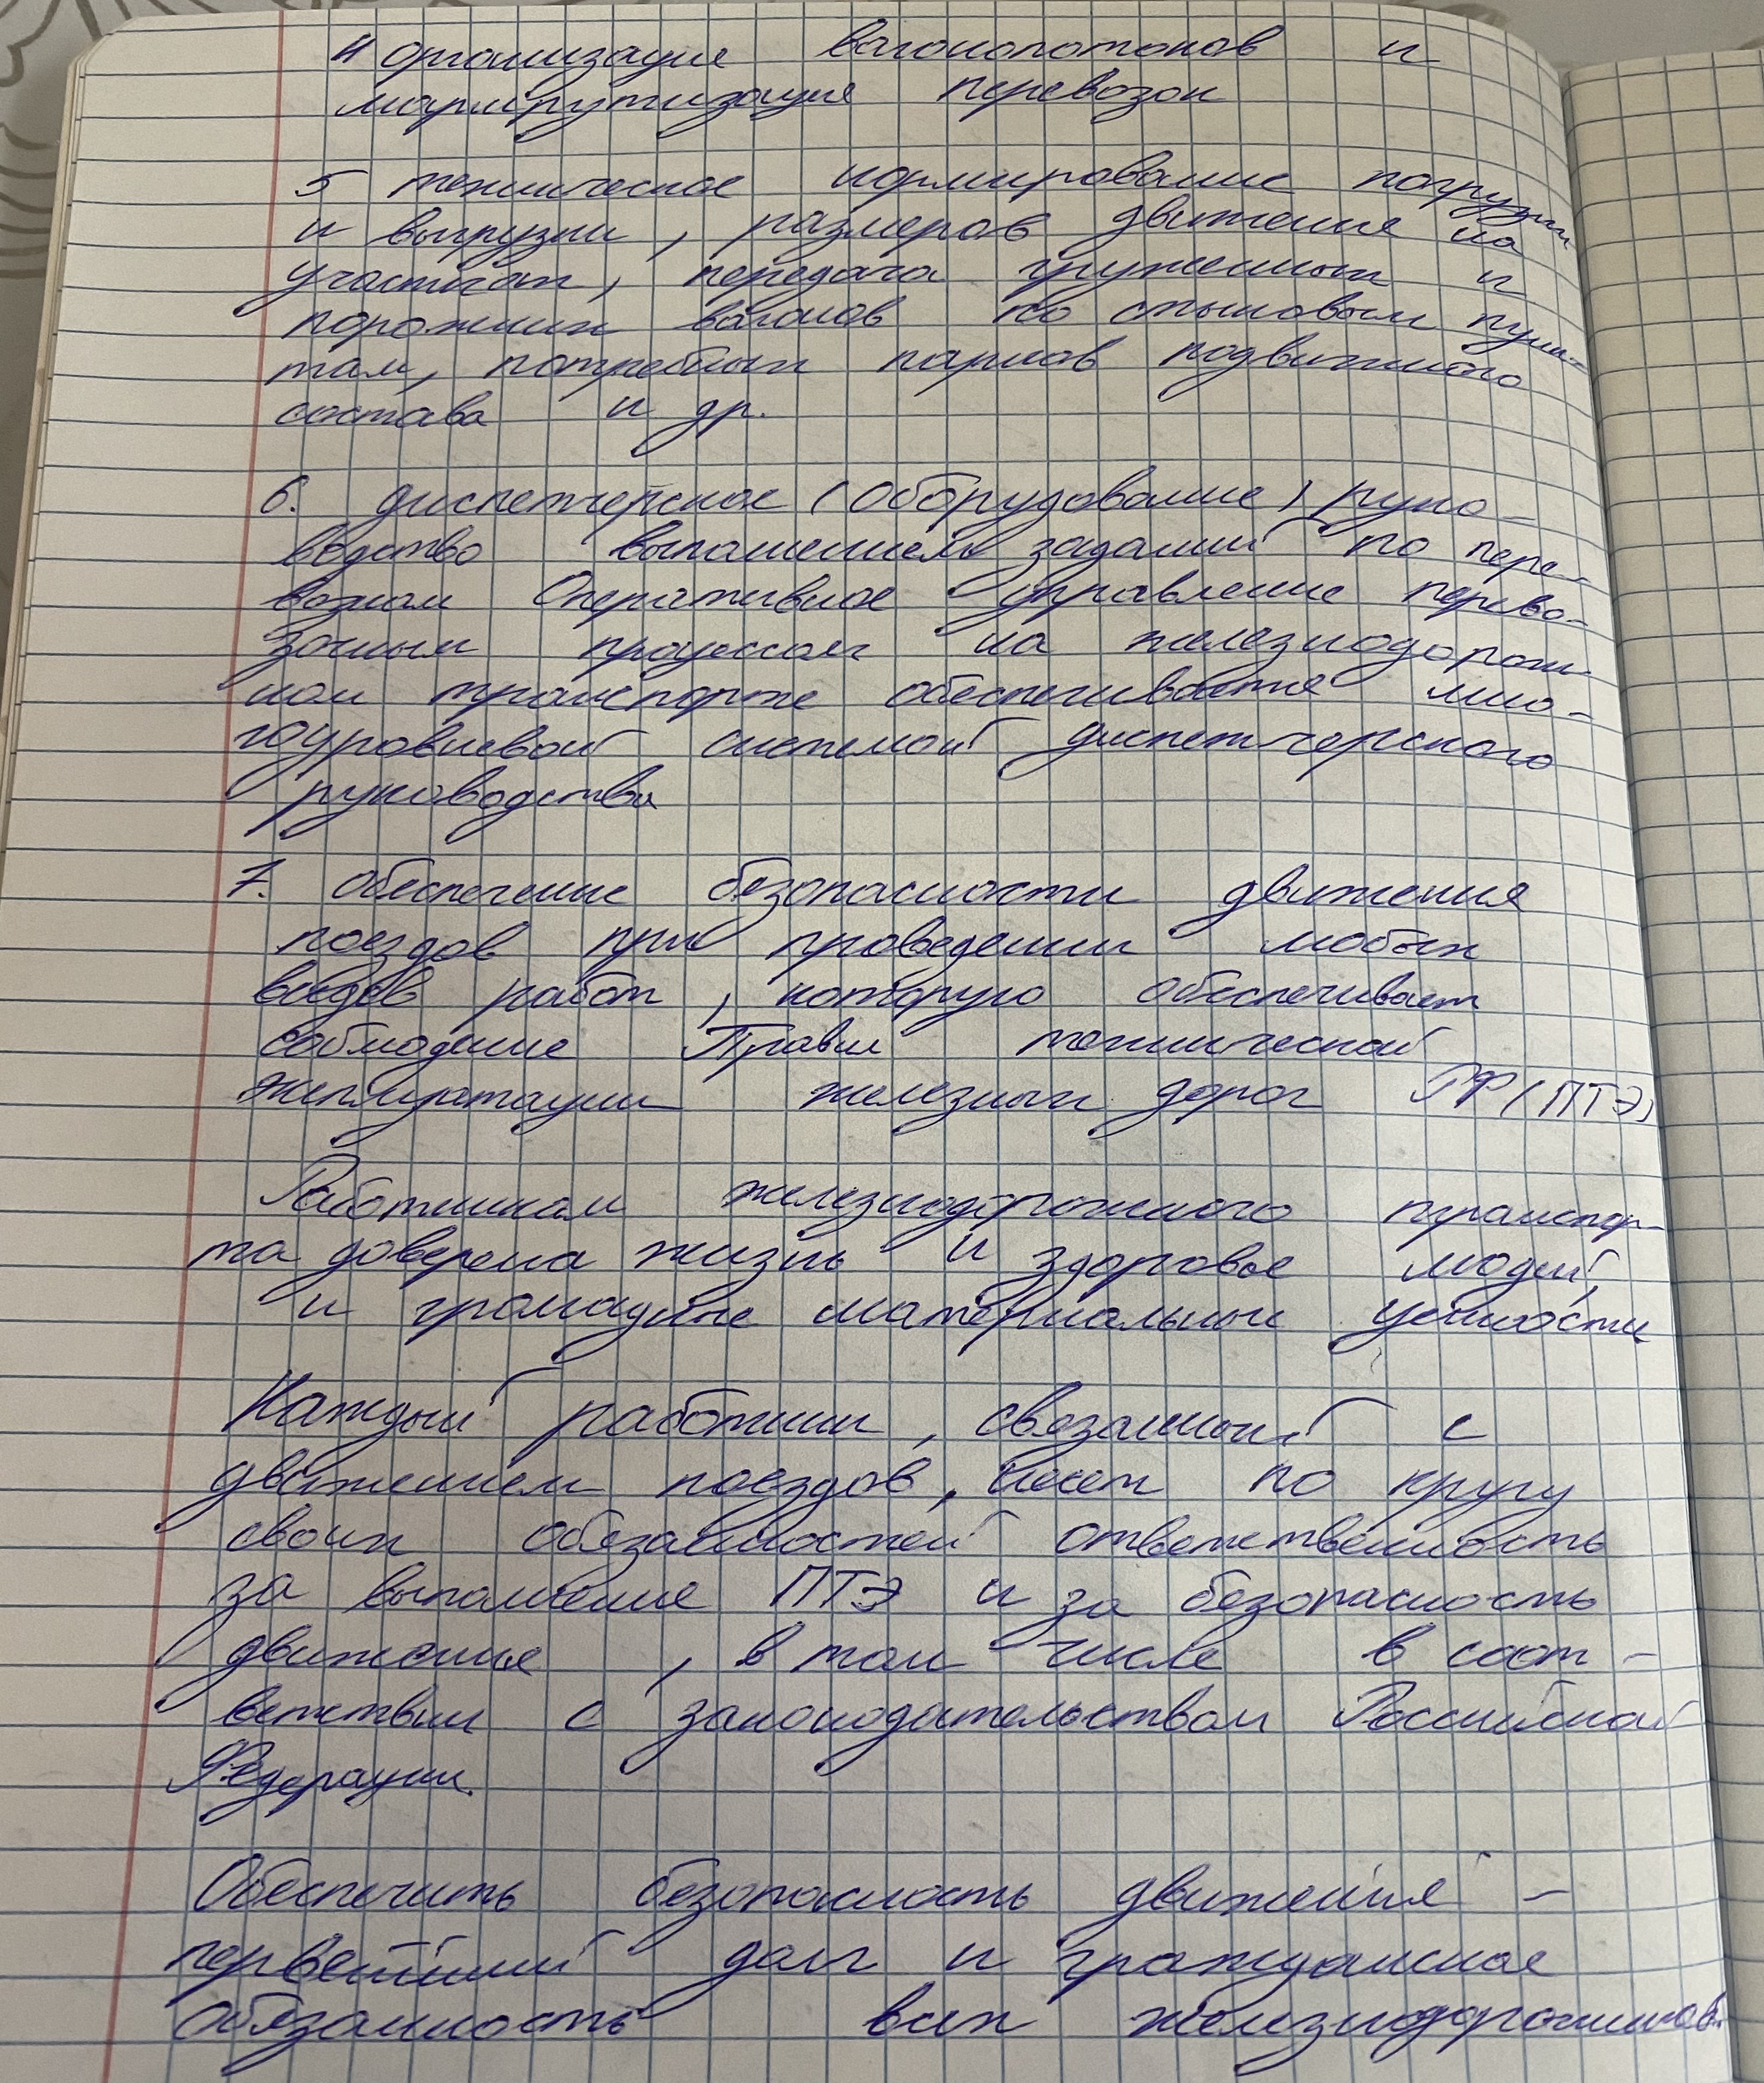 4 организация вагонопотоков и
маршрутизация перевозок
5 техническое нормирование погрузки
и выгрузки, размеров движения на
участках, передача груженных и
порожних вагонов по стыковым пунк-
там, потребных парков подвижного
состава и др.
6. диспетчерское (оборудование) руко-
водство выполнением заданий по пере-
возкам Оперативное управление перево-
зочным процессом на железнодорож-
ном транспорте обеспечивается мно-
гоуровневой системой диспетчерского
руководства
7. обеспечение безопасности движения
поездов при проведении любых
видов работ, которую обеспечивает
соблюдение Правил технической
эксплуатации железных дорог РФ (ПТЭ)
Работникам железнодорожного транспор-
та доверена жизнь и здоровье людей,
и громадные материальные ценности
Каждый работник, связанный с
движением поездов, несет по кругу
своих обязанностей ответственность
за выполнение ПТЭ и за безопасность
движения, в том числе в соот-
ветствии с законодательством Российской
Федерации.
Обеспечить безопасность движения -
первейший долг и гражданская
обязанность всех железнодорожников.